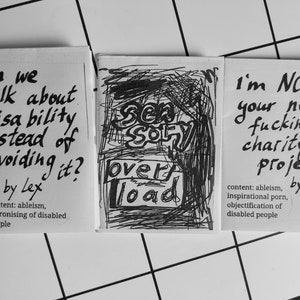 n we
lk about
isability
stead of
voiding
it?
by Lex
ntent: ableism,
tronising of disabled
ple
sen
sory
over
load
i'm NO
your n
fuckin
charit
proje
by
content: ableism,
inspirational porn,
objectification of
disabled people